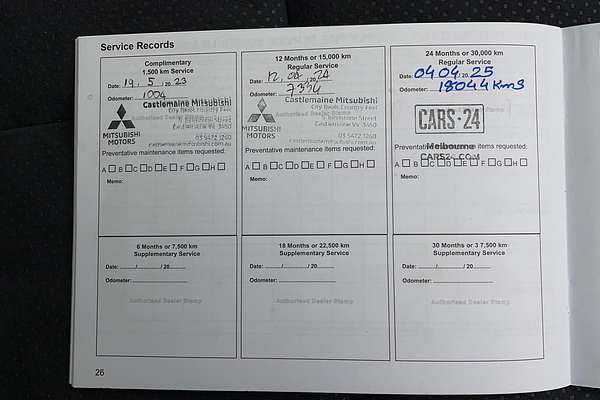 Service Records
Complimentary
1,500 km Service
Date: 19. 5 .20 23
Odometer: 1004
Castlemaine Mitsubishi
City Book Country Feel
Authorised Dealer Stamp
Castlemaine Vic 3450
03 5472 1260
castlemainemitsubishi.com.au
MITSUBISHI
MOTORS
Preventative maintenance items requested:
A B C D E F G H
Memo:
12 Months or 15,000 km
Regular Service
Date: 12. 04 .20 24
Odometer:
Castlemaine Mitsubishi
City Book Country Feel
Authorised Dealer Stamp
Castlemaine Vic 3450
03 5472 1260
castlemainemitsubishi.com.au
MITSUBISHI
MOTORS
Preventative maintenance items requested:
A B C D E F G H
Memo:
24 Months or 30,000 km
Regular Service
Date: 04 04 20 25
Odometer: 18044 Kms
CARS·24
Melbourne
CARS24.COM
Preventative maintenance items requested:
A B C D E F G H
Memo:
6 Months or 7,500 km
Supplementary Service
Date: ....../....../ 20......
Odometer: ....................
Authorised Dealer Stamp
18 Months or 22,500 km
Supplementary Service
Date: ....../....../ 20......
Odometer: ....................
Authorised Dealer Stamp
30 Months or 3 7,500 km
Supplementary Service
Date: ....../....../ 20......
Odometer: ....................
Authorised Dealer Stamp
26